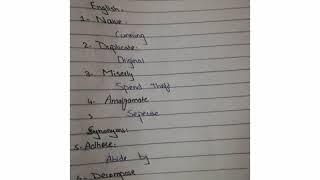 English.
1- Naive
Cunning
2- Duplicate
Original
3- Miserly
Spend thrift
4- Amalgamate
Seperate
Synonyms:
5- Adhere:
Abide by
6- Decompose